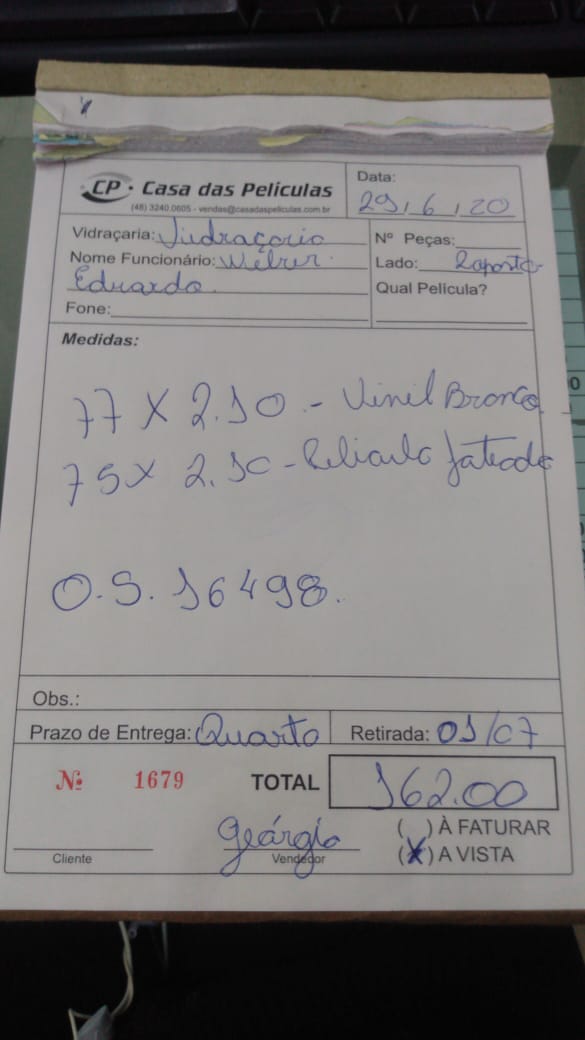 CP · Casa das Películas
(48) 3240.0605 - vendas@casadaspeliculas.com.br
Data:
29/6/20
Vidraçaria: Vidraçaria
Nome Funcionário:
Eduardo.
Fone:
Nº Peças:
Lado:
Qual Película?
Medidas:
77 X 2.10 - Vinil Branco.
75 X 2.10 - Película Jateada
O.S. 16498.
Obs.:
Prazo de Entrega: Quarta
Retirada: 01/07
Nº 1679
TOTAL 162.00
( ) À FATURAR
(X) A VISTA
Geórgia
Cliente
Vendedor